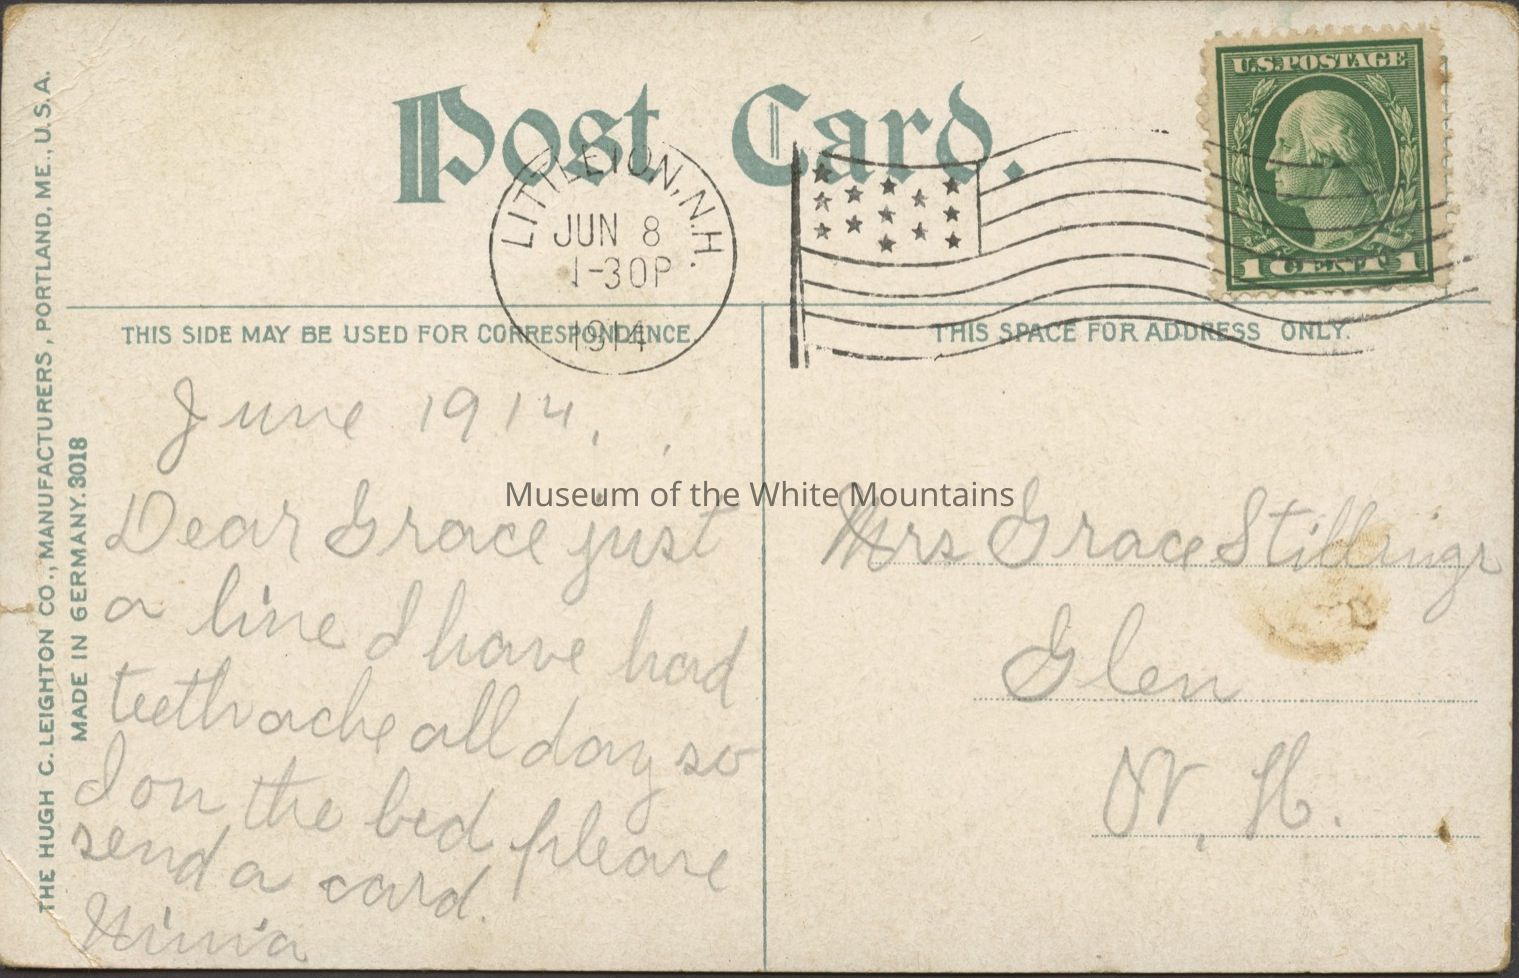 Post Card.
U.S. POSTAGE
1 CENT 1
LITTLETON, N.H.
JUN 8
1-30P
1914
THIS SIDE MAY BE USED FOR CORRESPONDENCE.
THIS SPACE FOR ADDRESS ONLY.
THE HUGH C. LEIGHTON CO., MANUFACTURERS, PORTLAND, ME., U.S.A.
MADE IN GERMANY. 3018
June 1914.
Dear Grace just
a line I have had
teethache all day so
I on the bed please
send a card.
Museum of the White Mountains
Mrs Grace Stillings
Glen
N. H.